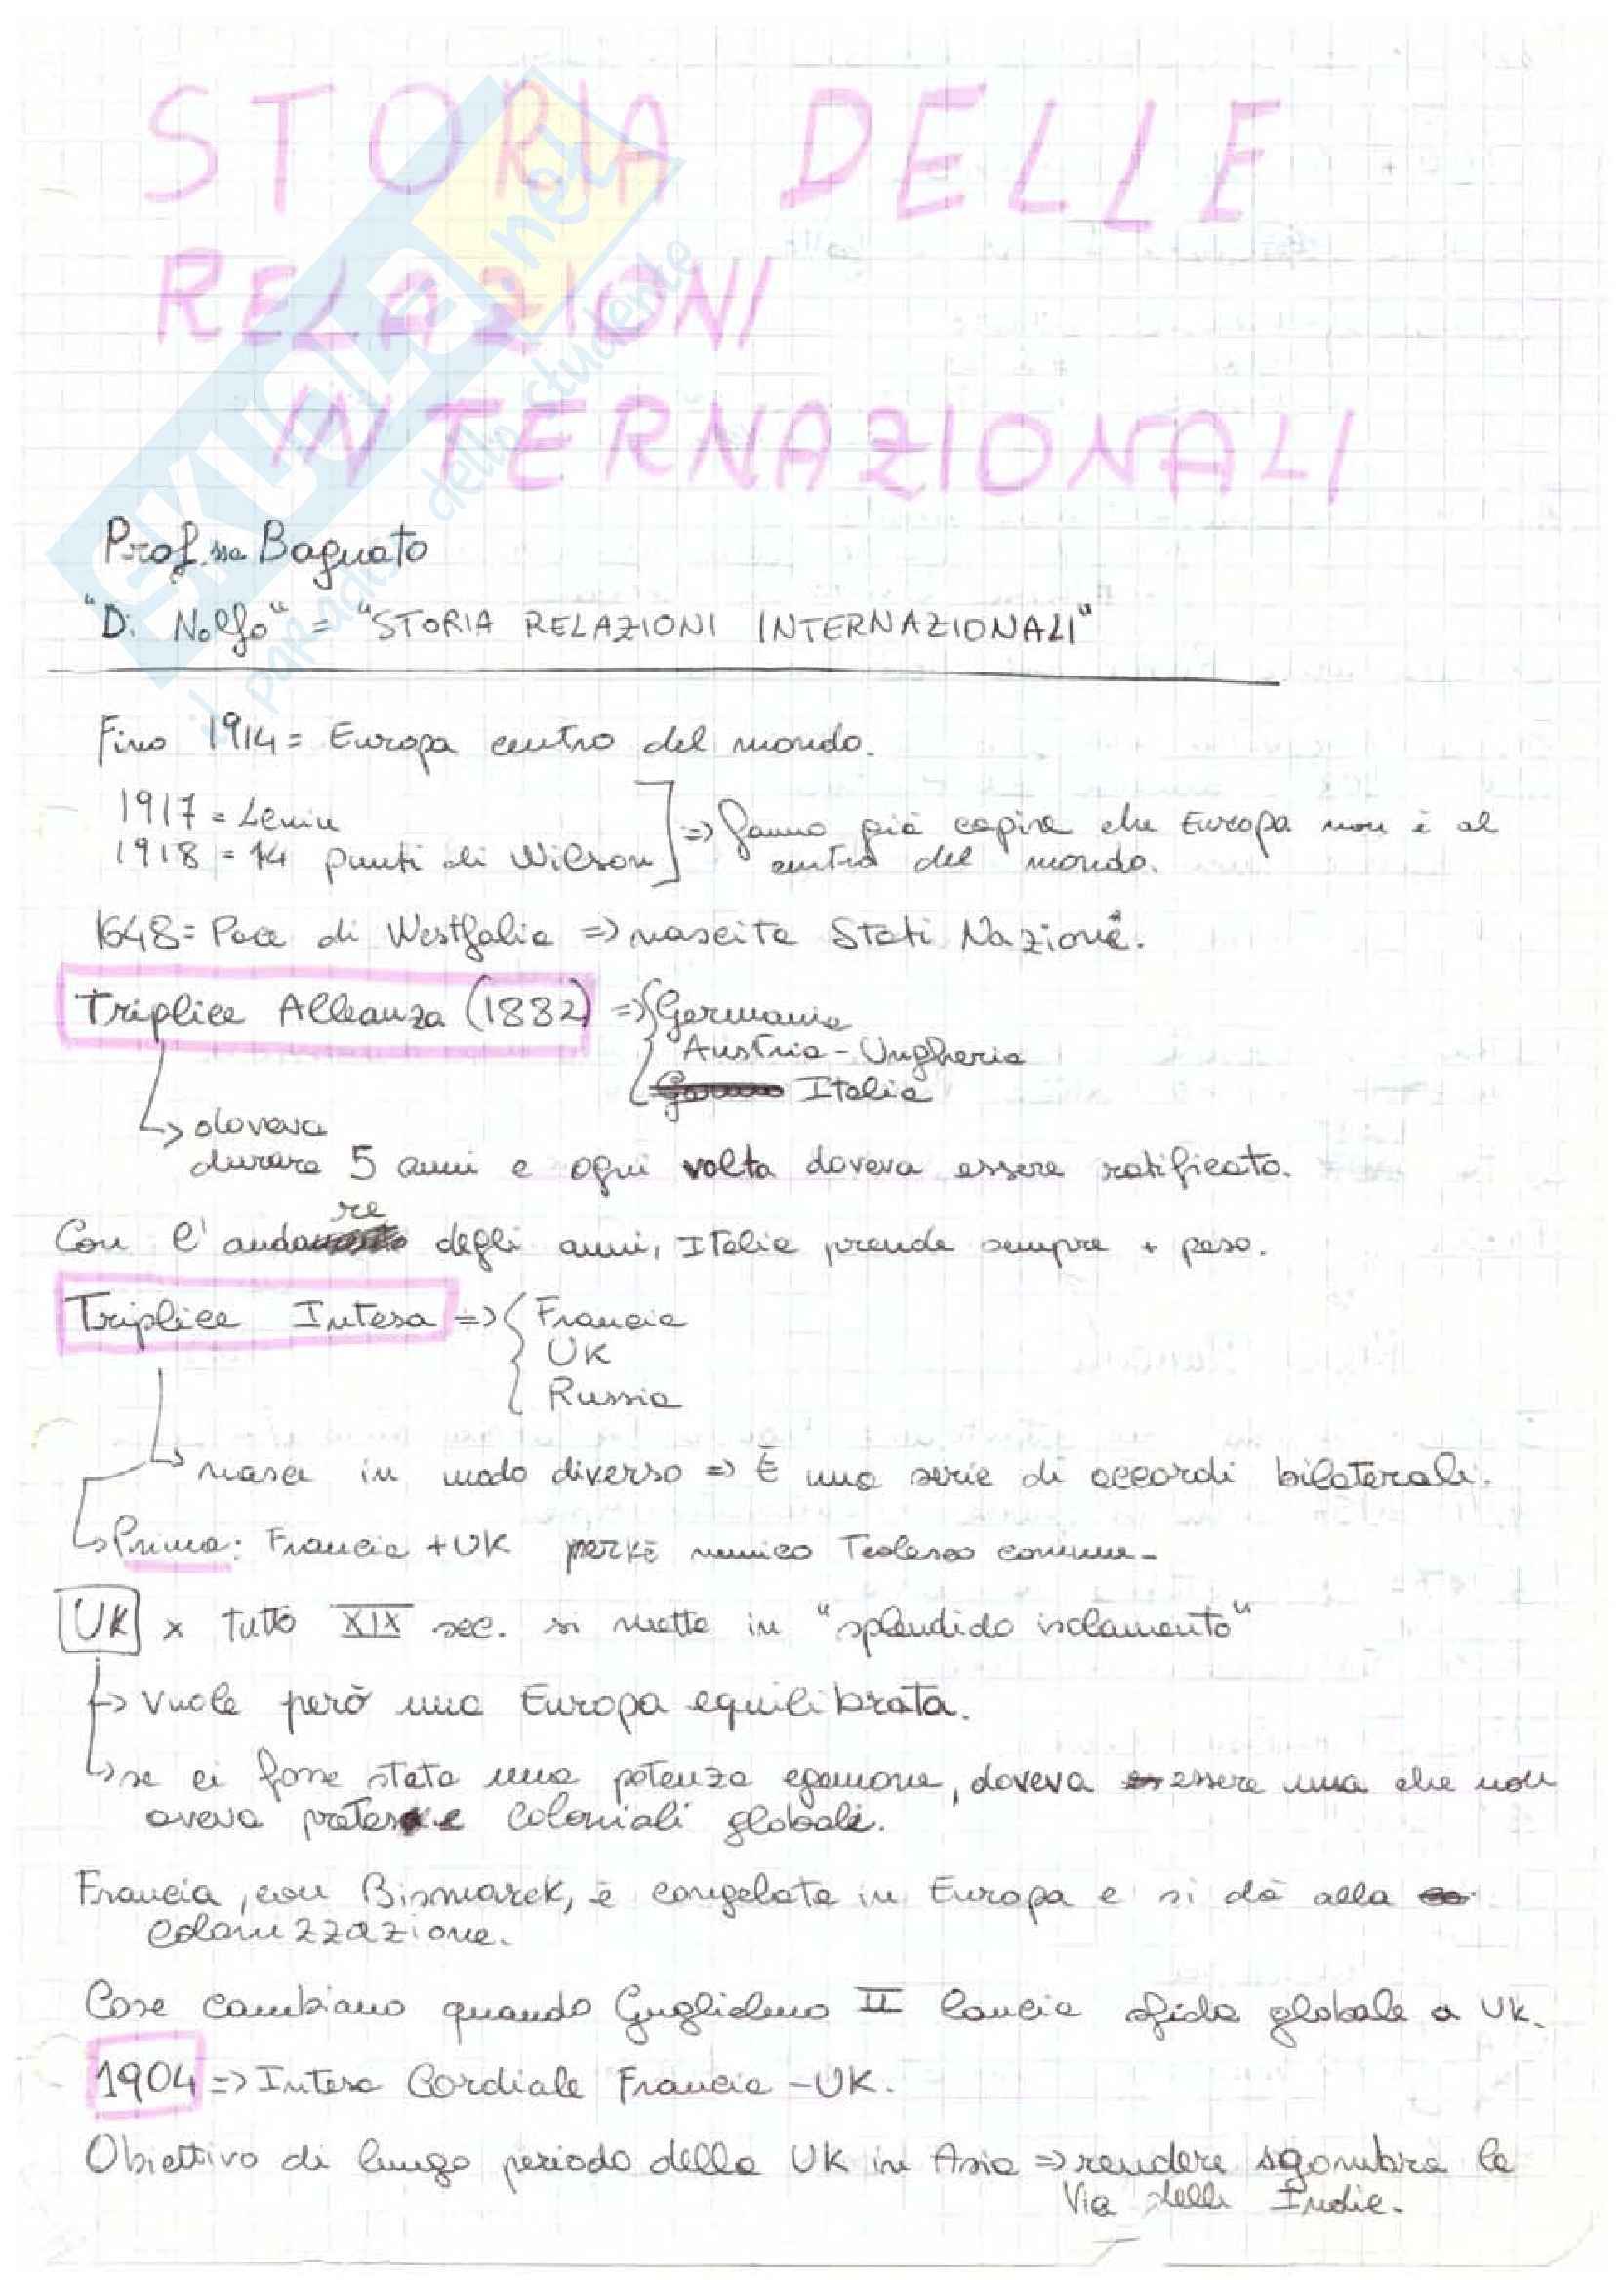 STORIA DELLE
RELAZIONI
INTERNAZIONALI
SKUOLA.net
il paradiso dello studente
Prof.ssa Bagnato
"Di Nolfo" = "STORIA RELAZIONI INTERNAZIONALI"
Fino 1914 = Europa centro del mondo.
1917 = Lenin
1918 = 14 punti di Wilson
=> fanno già capire che Europa non è al
centro del mondo.
1648 = Pace di Westfalia => nascita Stati Nazione.
Triplice Alleanza (1882) => Germania
Austria-Ungheria
Italia
doveva
durare 5 anni e ogni volta doveva essere ratificato.
Con l'andare degli anni, Italia prende sempre + peso.
Triplice Intesa => Francia
UK
Russia
nasce in modo diverso => È una serie di accordi bilaterali.
Prima: Francia + UK perkè nemico Tedesco comune.
UK x tutto XIX sec. si mette in "splendido isolamento"
vuole però una Europa equilibrata.
se ci fosse stata una potenza egemone, doveva essere una che non
aveva pretese coloniali globali.
Francia, con Bismarck, è congelata in Europa e si dà alla
colonizzazione.
Cose cambiano quando Guglielmo II lancia sfida globale a UK.
1904 => Intesa Cordiale Francia - UK.
Obiettivo di lungo periodo della UK in Asia => rendere sgombra la
Via delle Indie.